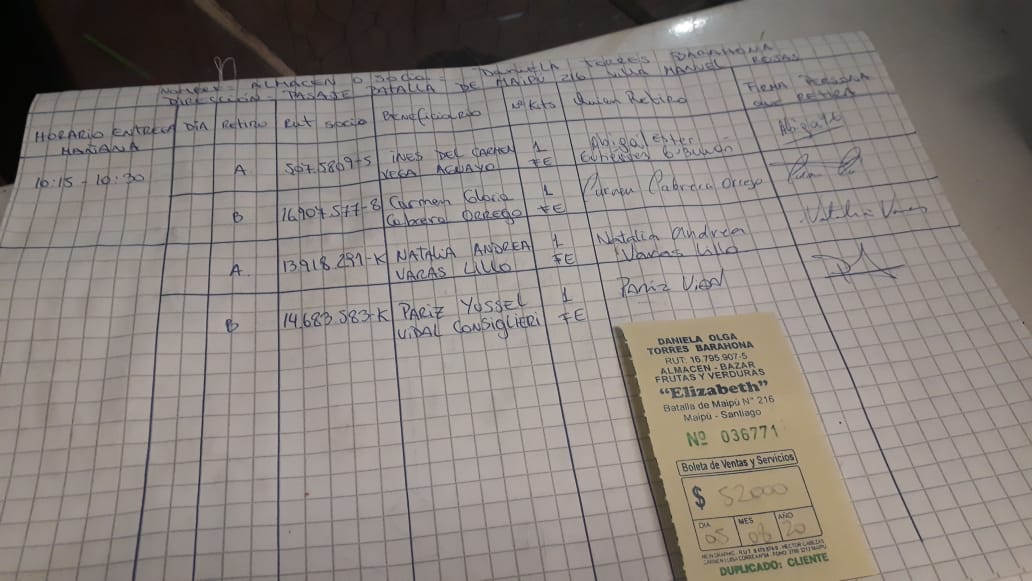 Nombre = ALMACEN O SOCIO = DANIELA TORRES BARAHONA
DIRECCION = PASAJE BATALLA DE MAIPU 216 MANUEL ROJAS
HORARIO ENTREGA MAÑANA
DIA
RETIRO
Rut socio
BENEFICIARIO
Nº Kits
Quien Retiro
FIRMA PERSONA
que RETIRA
10:15 - 10:30
A
507.5809-5
INES DEL CARMEN
VEGA AGUAYO
1
FE
Abigal Ester
Abigail
B
16.907.577-8
Carmen Gloria
Cabrera ORREGO
1
FE
Carmen Cabrera Orrego
A.
13.918.291-K
NATALIA ANDREA
VARAS LILLO
1
FE
Natalia Andrea
Varas Lillo
Natalia Varas
B
14.683.583-K
PARIZ YUSSEL
VIDAL CONSIGLIERI
1
FE
Pariz Vidal
DANIELA OLGA
TORRES BARAHONA
RUT. 16.795.907-5
ALMACEN - BAZAR
FRUTAS Y VERDURAS
"Elizabeth"
Batalla de Maipú N° 216
Maipú - Santiago
Nº 036771
Boleta de Ventas y Servicios
$ 52000
DIA MES AÑO
05 08 20
DUPLICADO: CLIENTE